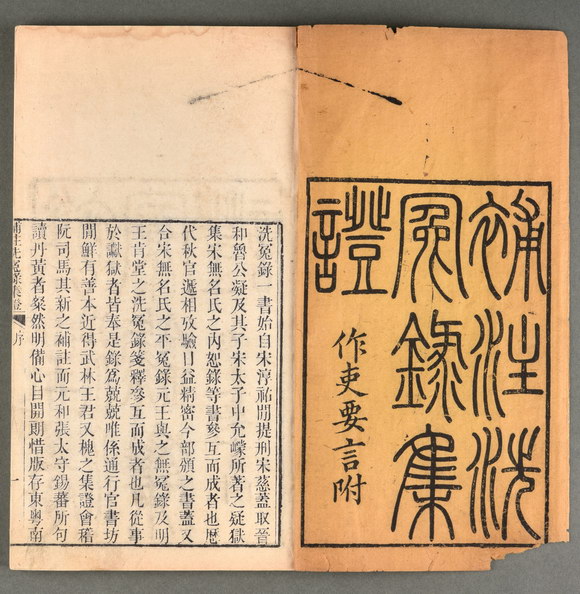 補注洗
冤錄集
證
作吏要言附
洗冤錄一書始自宋淳祐間提刑宋慈蓋取晉
和魯公凝及其子宋太子中允㠓所著之疑獄
集宋無名氏之內恕錄等書參互而成者也厯
代秋官遞相攷驗日益精密今部頒之書蓋又
合宋無名氏之平冤錄元王與之無冤錄及明
王肯堂之洗冤錄箋釋參互而成者也凡從事
於讞獄者皆奉是錄爲兢兢唯係通行官書坊
間鮮有善本近得武林王君又槐之集證會稽
阮司馬其新之補註而元和張太守錫蕃所句
讀丹黃者粲然明備心目開朗惜版存東粤南
補注洗冤錄集證 序 一